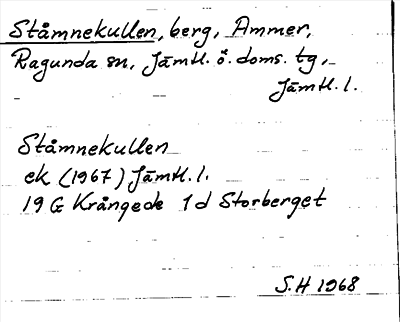 Ståmnekullen, berg, Ammer,
Ragunda sn, Jämtl. ö. doms. tg,
Jämtl. l.
Ståmnekullen
ek (1967) Jämtl. l.
19 G Krångede 1 d Storberget
S.H 1968